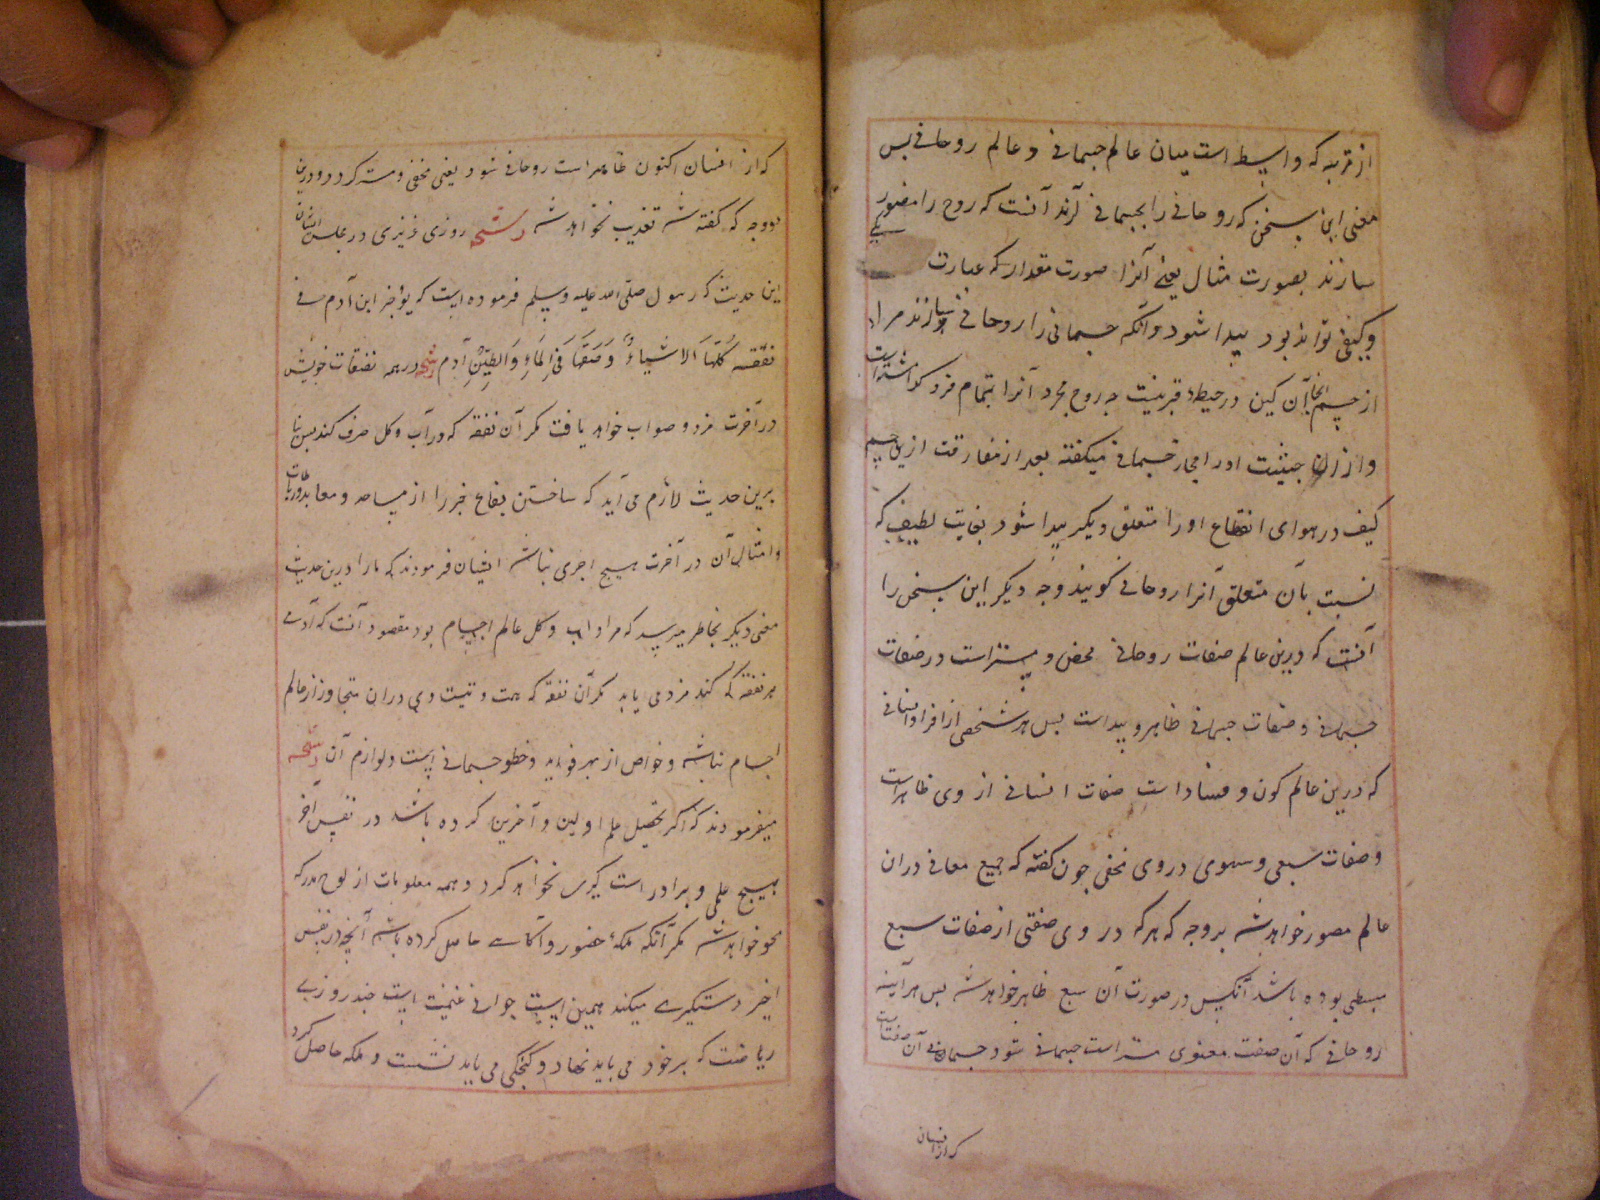 از مرتبه که واسطه است میان عالم جسمانی و عالم روحانی پس
معنی این سخن که روحانی را بجسمانی آرند آنست که روح را مصور
سازند بصورت مثال یعنی آنرا صورت مقدار که عبارت
و کیفی تواند بود پیدا شود و آنکه جسمانی را روحانی سازند مراد
از جسم اینجا آن کین در حیطهٔ روح مجرد آنرا بتمام فرو
و از آن حیثیت او را مجاز جسمانی میکفته بعد از مفارقت ازین جسم
کثیف در هوای انقطاع او را متعلق دیکر پیدا شود بغایت لطیف که
نسبت بآن متعلق آنرا روحانی کویند وجه دیکر این سخن را
آنست که درین عالم صفات روحانی مخفی و مستتر است در صفات
جسمانی و صفات جسمانی ظاهر و پیداست پس هر شخصی از افراد انسانی
که درین عالم کون و فساد است صفات انسانی از وی ظاهر است
و صفات سبعی و بهیمی در وی مخفی چون کفته که جمیع معانی در آن
عالم مصور خواهد شد بر وجه که هر که در وی صفتی از صفات سبع
بوده باشد آنکس در صورت آن سبع ظاهر خواهد شد پس هر آینه
روحانی که آن صفت معنوی مستتر است جسمانی شود جسمانی آن صفتست
که از انسان
که از انسان اکنون ظاهر است روحانی شود یعنی مخفی و مستتر کردد و درین
دو وجه که کفته شد تعذیب نخواهد شد رشحه روزی عزیزی در مجلس ایشان
این حدیث که رسول صلی الله علیه و سلم فرموده است که یؤجر ابن آدم فی
نفقته کلها الا شیاء وضعها فی الماء والطین آدمی در همه نفقات خویش
در آخرت مزد و صواب خواهد یافت مکر آن نفقه که در آب و کل صرف کند پس بنا
برین حدیث لازم می آید که ساختن بقاع خیر را از مساجد و معابد و رباطات
و امثال آن در آخرت هیچ اجری نباشد ایشان فرمودند که ما را درین حدیث
معنی دیکر بخاطر میرسد که مراد از آب و کل عالم اجسام بود مقصود آنست که آدمی
هر نفقه که کند مزد می یابد مکر آن نفقه که همت و نیت وی در آن متجاوز از عالم
اجسام نباشد و خواص از بهر فواید و حظوظ جسمانی است و لوازم آن رشحه
میفرمودند که اکر کسی تحصیل علم اولین و آخرین کرده باشد در نفس آخر
هیچ علمی ویرا دستکیری نخواهد کرد و همه معلومات از لوح مدرکه
محو خواهد شد مکر آنکه ملکهٔ حضور و آکاهی حاصل کرده باشد آنچه در نفس
اخیر دستکیری میکند همین است جوانی غنیمت است چند روزی
ریاضت که بر خود می باید نهاد و کنجکی می باید نشست و ملکه حاصل کرد